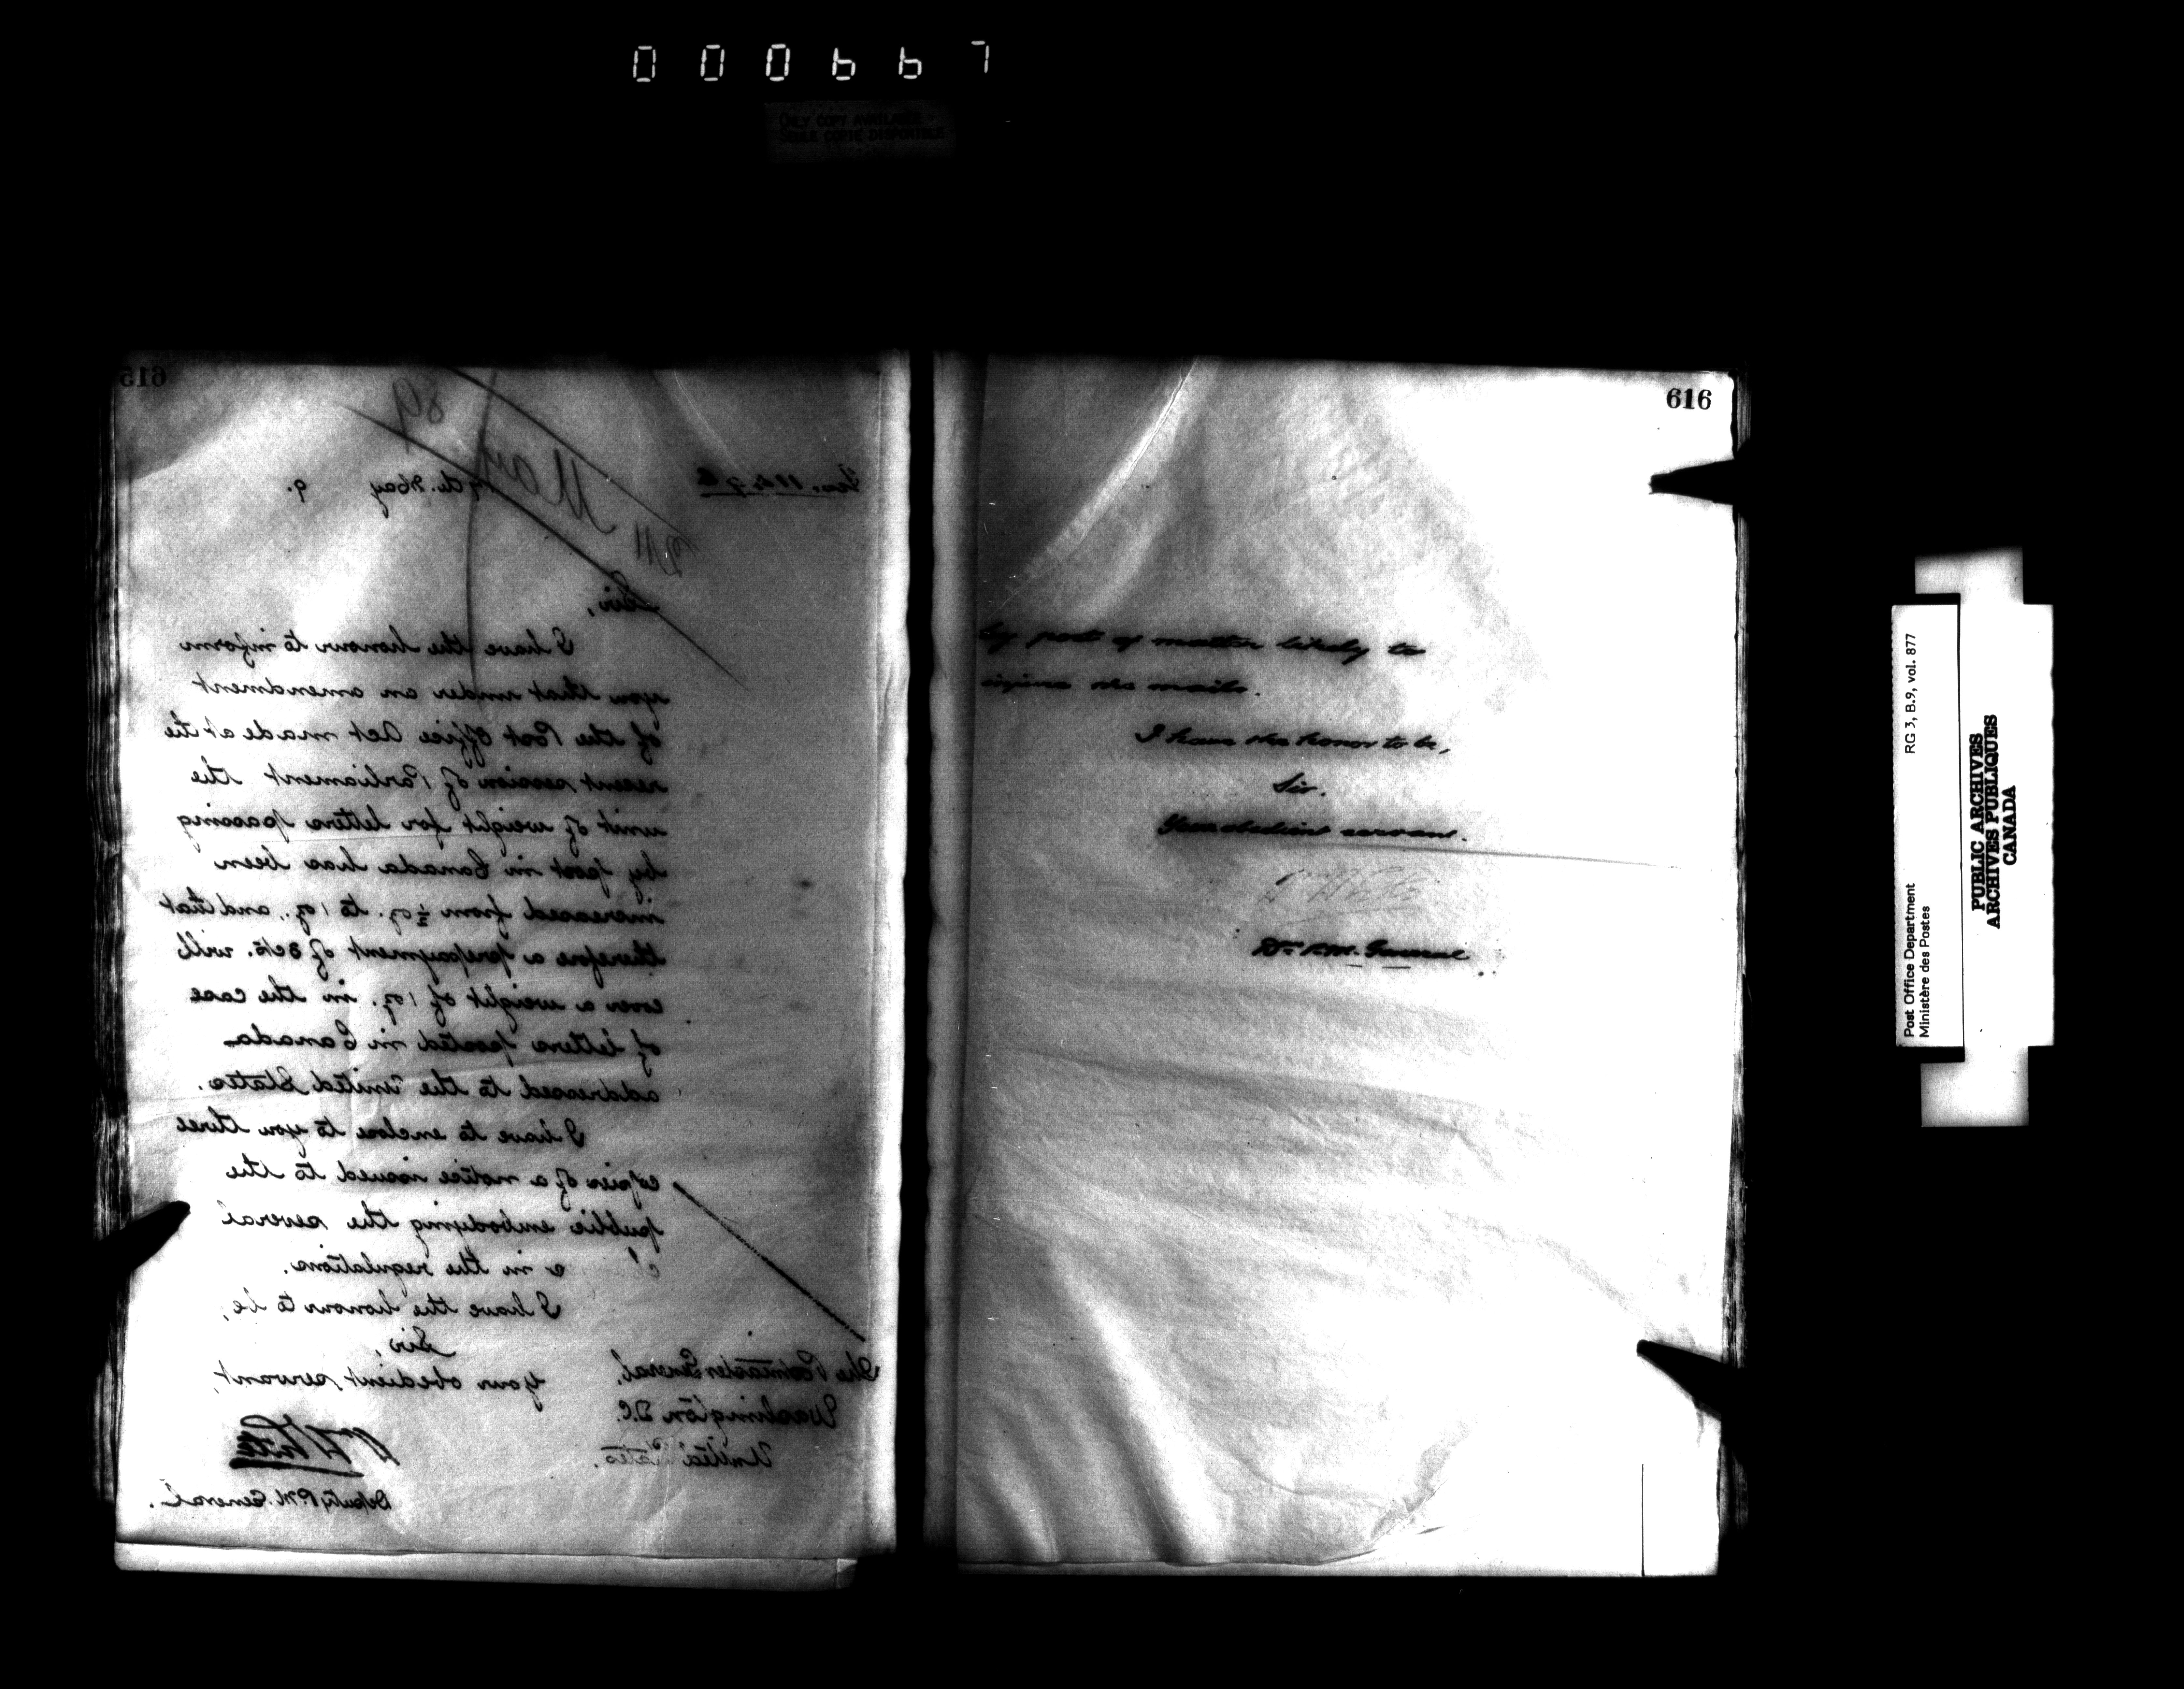 000667
ONLY COPY AVAILABLE
SEULE COPIE DISPONIBLE
615
89
May
th. May 9.
Sir,
I have the honour to inform
you that under an amendment
of the Post Office Act made at the
recent session of Parliament the
unit of weight for letters passing
by post in Canada has been
increased from ½ oz. to 1 oz., and that
therefore a prepayment of 3 cts. will
cover a weight of 1 oz. in the case
of letters posted in Canada
addressed to the United States.
I have to enclose to you three
copies of a notice issued to the
public embodying the several
in the regulations.
I have the honour to be,
Sir,
Your obedient servant,
White
Deputy P. M. General.
The Postmaster General,
Washington D.C.
United States.
616
by post of matter likely to
injure the mails.
I have the honor to be,
Sir.
Your obedient servant.
Dy P.M. General
Post Office Department
Ministère des Postes
RG 3, B.9, vol. 877
PUBLIC ARCHIVES
ARCHIVES PUBLIQUES
CANADA